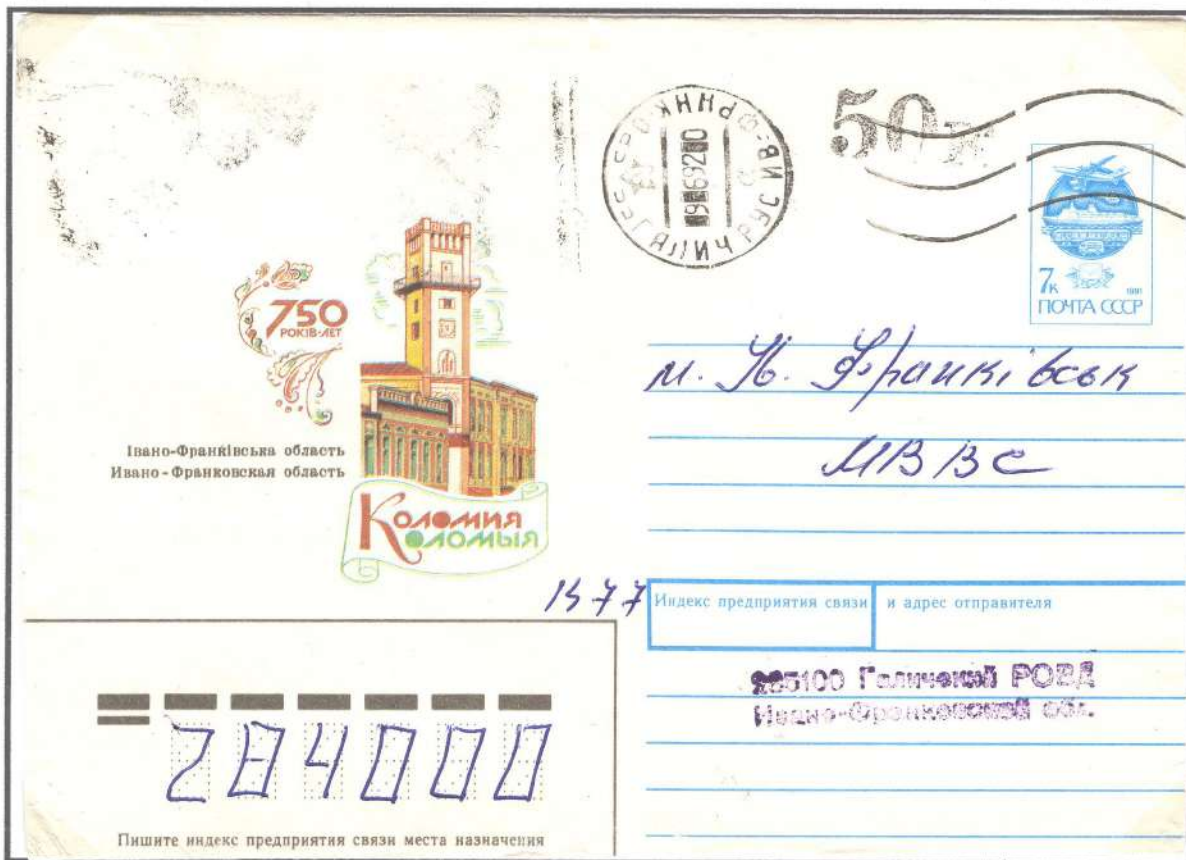 50к
ГАЛИЧ
7к 1991
ПОЧТА СССР
750
РОКІВ·ЛЕТ
Івано-Франківська область
Ивано-Франковская область
КОЛОМИЯ
КОЛОМЫЯ
м. Ів. Франківськ
МВВС
1577
Индекс предприятия связи и адрес отправителя
285100 Галичский РОВД
Ивано-Франковской обл.
284000
Пишите индекс предприятия связи места назначения